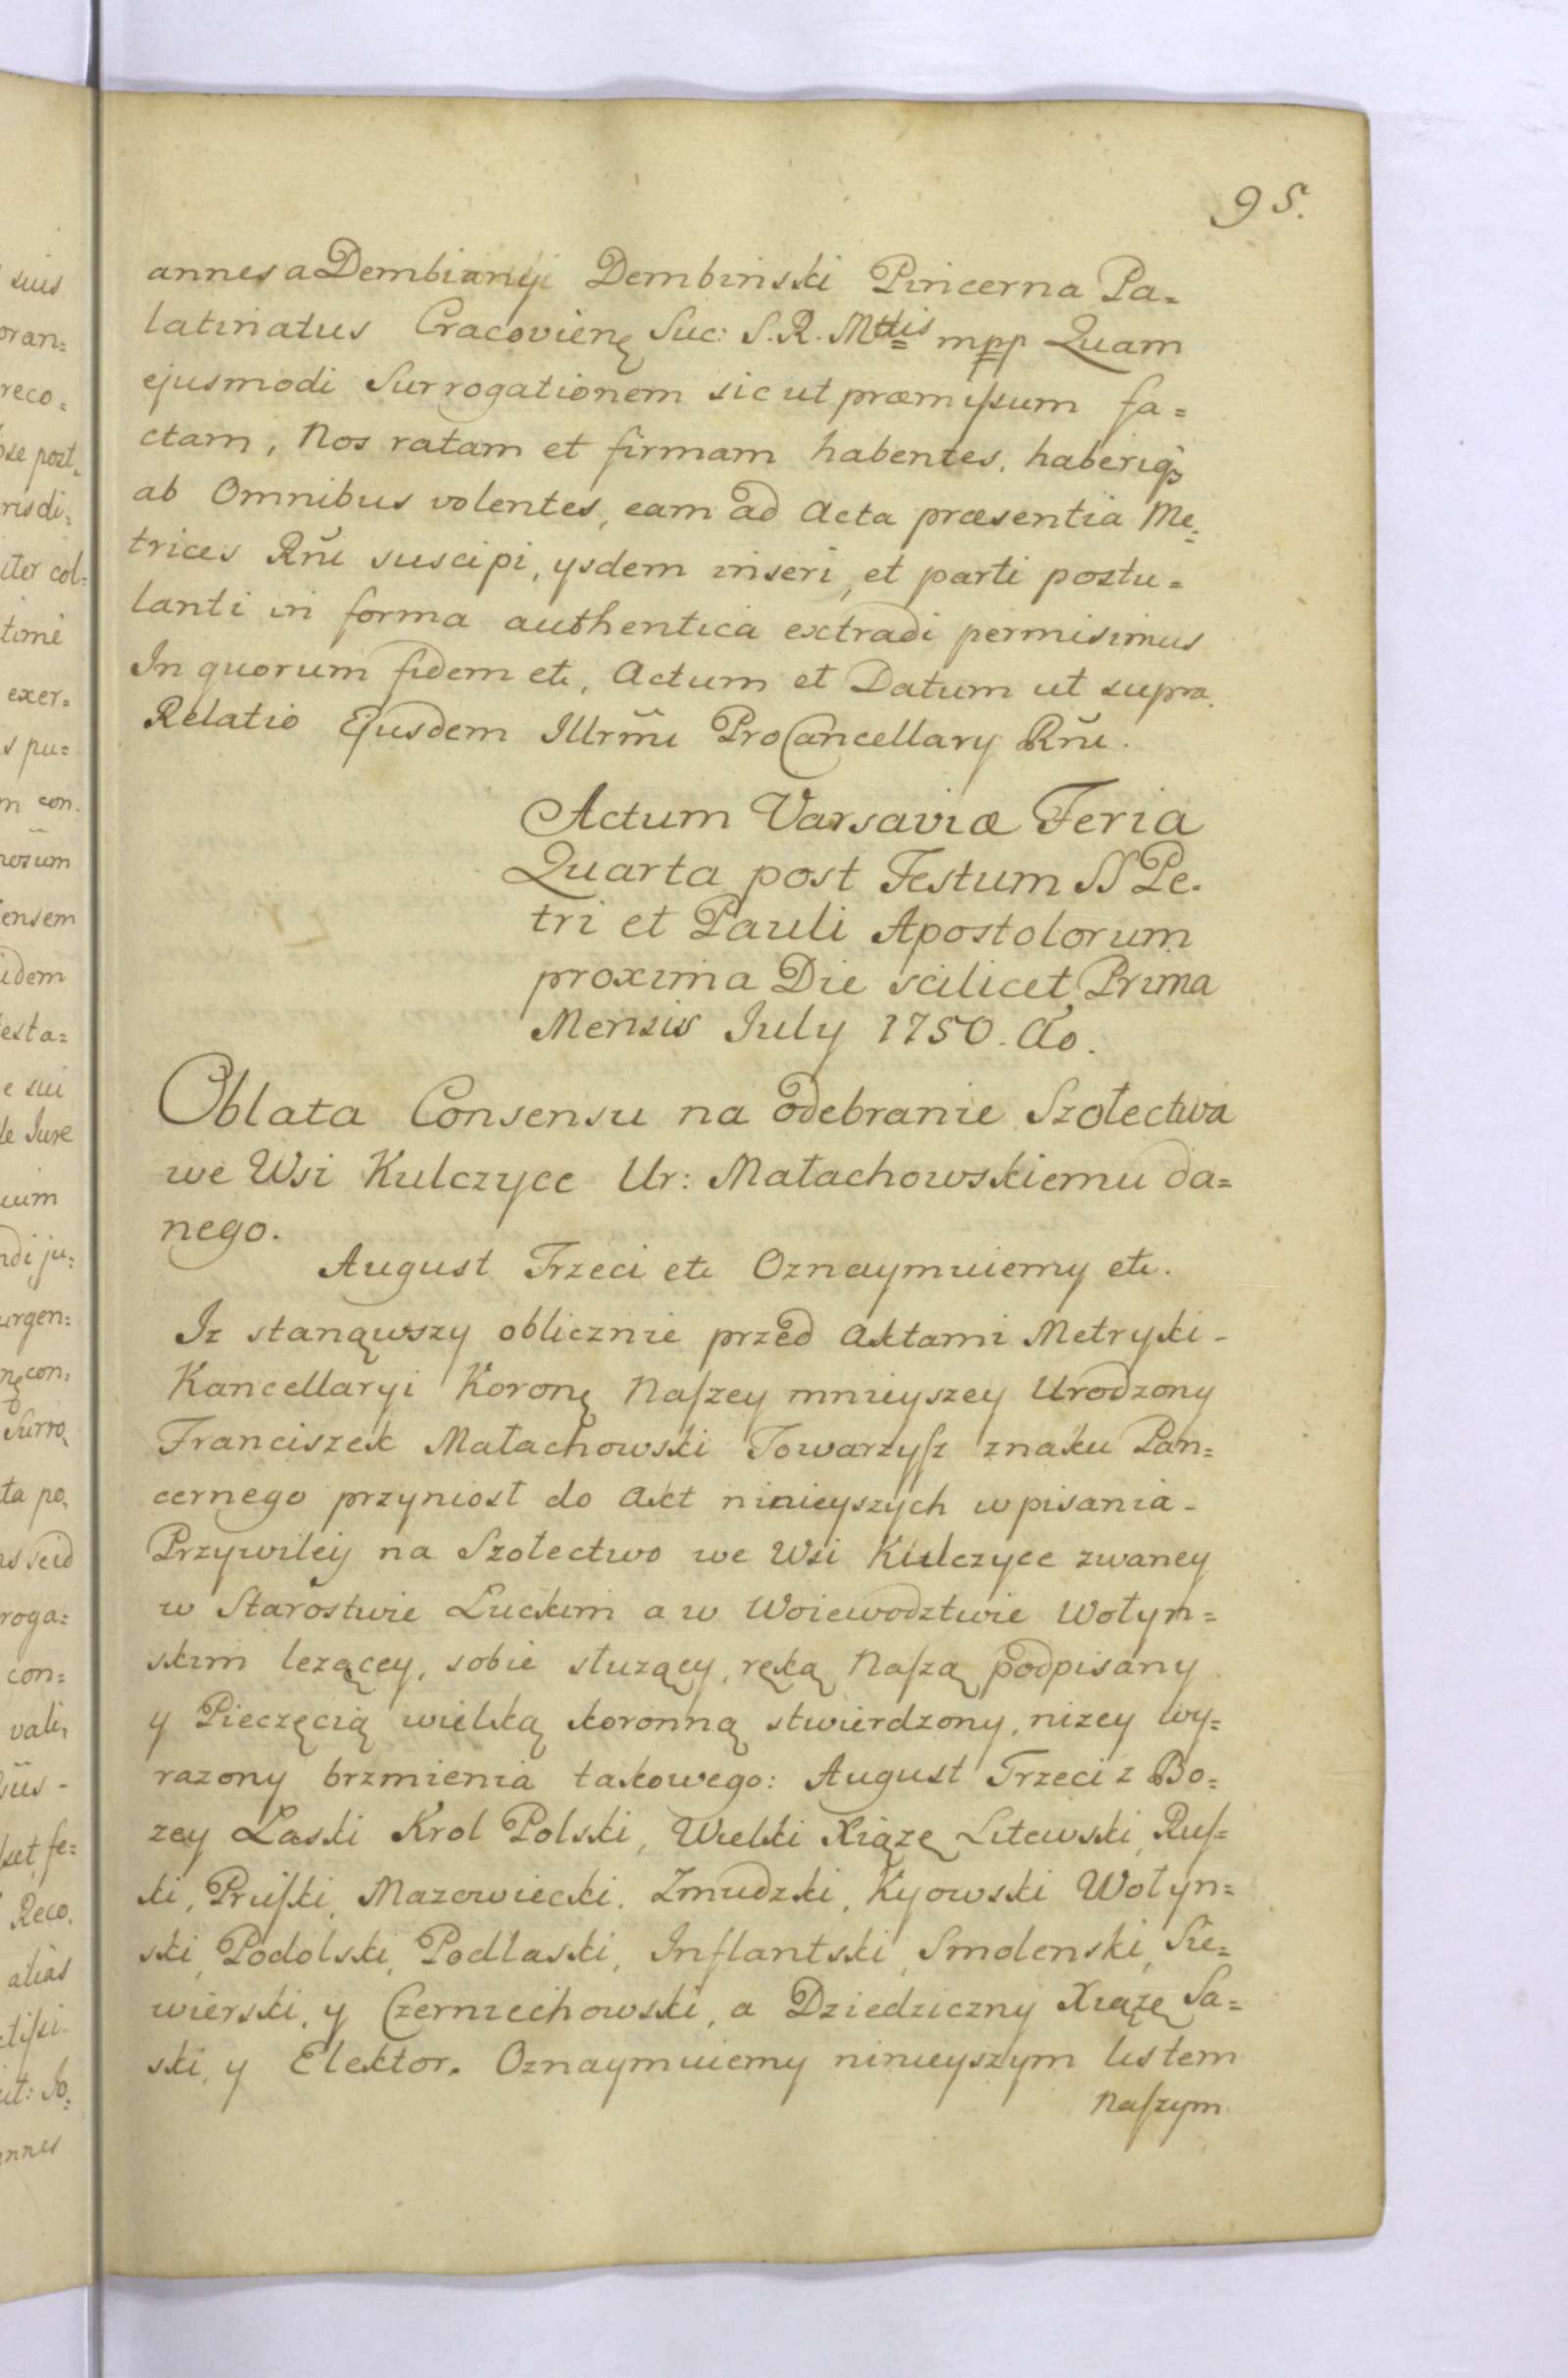 95.
annes a Dembiany Dembinski Pincerna Pa=
latinatus Cracovien Suc: S. R. Mttis mpp Quam
ejusmodi Surrogationem sic ut præmiſsum fa=
ctam, Nos ratam et firmam habentes, haberiq3
ab Omnibus volentes, eam ad Acta præsentia Me=
trices Rñi suscipi, ysdem inseri, et parti postu=
lanti in forma authentica extradi permisimus
In quorum fidem etc, Actum et Datum ut supra.
Relatio Ejusdem Illrm̃i ProCancellary Rñi.
Actum Varsaviæ Feria
Quarta post Festum SS Pe=
tri et Pauli Apostolorum
proxima Die scilicet Prima
Mensis July 1750. Ao.
Oblata Consensu na odebranie Szołectwa
we Wsi Kulczyce Ur: Małachowskiemu da=
nego.
August Trzeci etc Oznaymuiemy etc.
Iz stanąwszy oblicznie przed Aktami Metryki -
Kancellaryi Koronę Naſzey mnieyszey Urodzony
Franciszek Małachowski Towarzyſz znaku Pan=
cernego przyniosł do Akt ninieyszych wpisania -
Przywiley na Szołectwo we Wsi Kulczyce zwaney
w Starostwie Łuckim a w Woiewodztwie Wołyn=
skim lezącey, sobie słuzący, ręką Naſzą podpisany
y Pieczęcią wielką koronną stwierdzony, nizey wy=
razony brzmienia takowego: August Trzeci z Bo=
zey Łaski Krol Polski, Wielki Xiąze Litewski, Ruſ=
ki, Pruſki, Mazowiecki, Zmudzki, Kyowski Wołyn=
ski, Podolski, Podlaski, Inflantski, Smolenski, Sie=
wierski, y Czerniechowski, a Dziedziczny Xiąze Sa=
ski, y Elektor. Oznaymuiemy ninieyszym listem
Naſzym